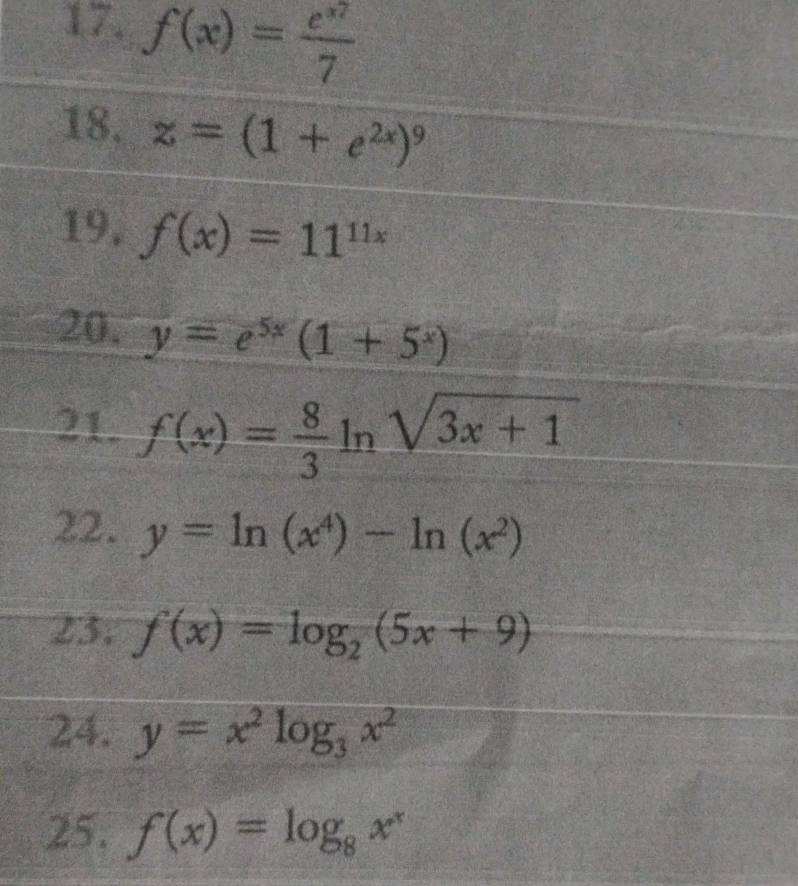 17. f(x) = e^{x^7}/7
18. z = (1 + e^{2x})^9
19. f(x) = 11^{11x}
20. y = e^{5x} (1 + 5^x)
21. f(x) = 8/3 ln √(3x + 1)
22. y = ln (x^4) − ln (x^2)
23. f(x) = log_2 (5x + 9)
24. y = x^2 log_3 x^2
25. f(x) = log_8 x^x